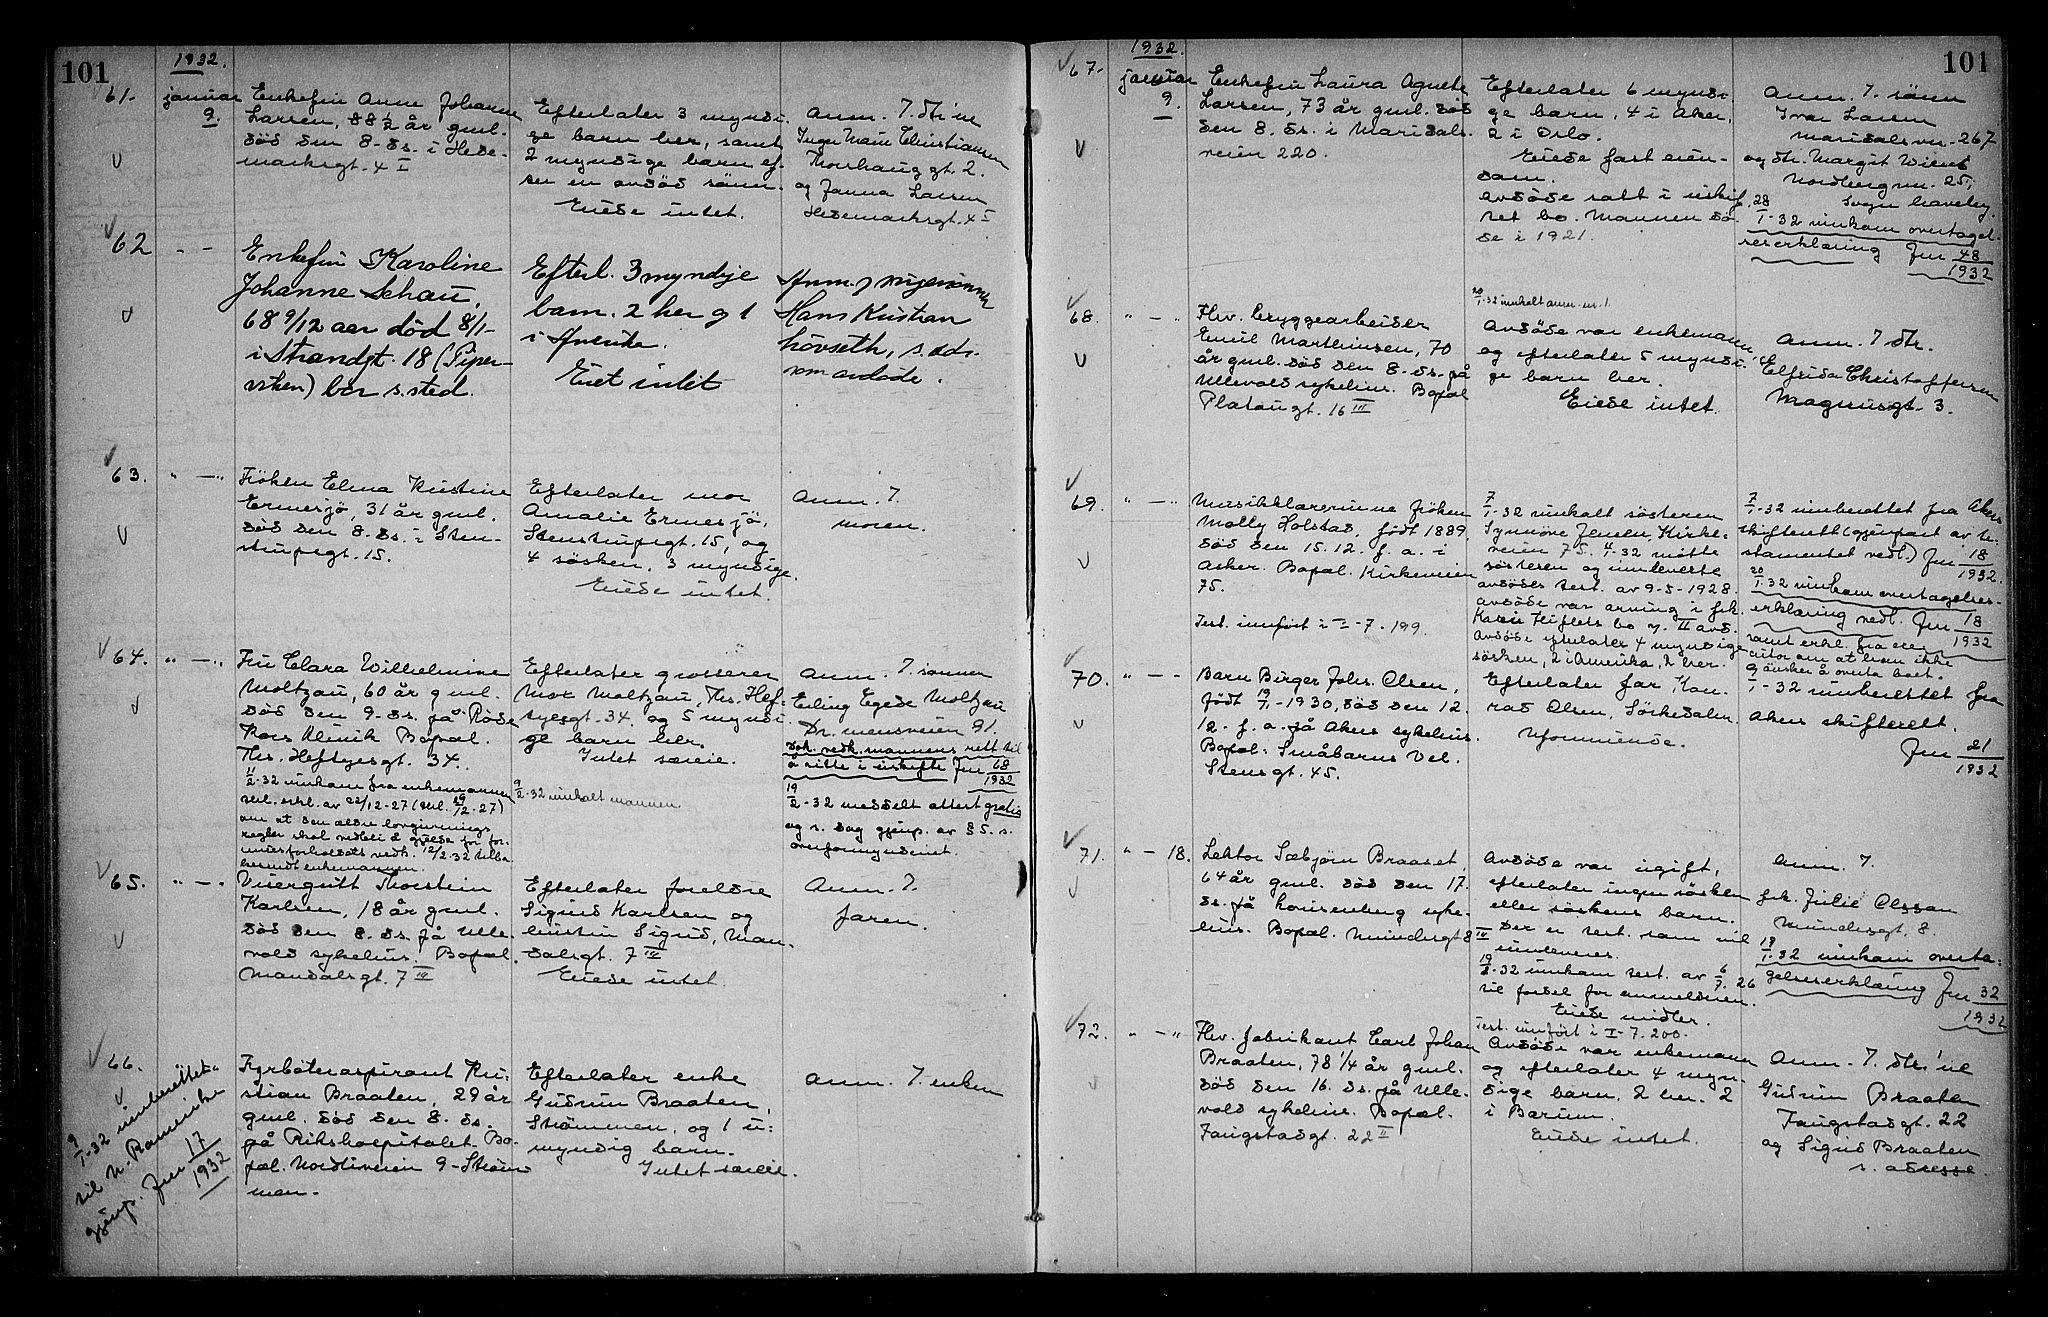 101
1932.
61.
januar
9.
Enkefru Anne Johanne
Larsen, 88 1/2 år gml.
död den 8. ds. i Hede-
marksgt. 4 I
Efterlater 3 myndi-
ge barn her, samt
2 myndige barn ef-
ter en avdöd sönn.
Eiede intet.
Anm. 7. dtrne
Inger Marie Christiansen
Thorhauggt. 2.
og Janna Larsen
Hedemarksgt. 4 I
62
" -
Enkefru Karoline
Johanne Schau,
68 9/12 aar död 8/1-
i Strandgt. 18 (Piper-
viken) bor s. sted.
Efterl. 3 myndige
barn. 2 her og 1
i Amerika.
Eiet intet
Anm. 7
Hans Kristian
Hovseth, s. adr.
som avdöde.
63.
" - "
Fröken Elena Kristine
Ermesjö, 31 år gml.
död den 8. ds. i Sten-
strupgt. 15.
Efterlater mor
Amalie Ermesjö,
Stenstrupgt. 15, og
4 sösken, 3 myndige.
Eiede intet.
Anm. 7.
moren.
64.
" - "
Fru Clara Wilhelmine
Moltzau, 60 år gml.
död den 9. ds. på Röde
Kors Klinik Bopæl.
Ths. Heftyesgt. 34.
11/2-32 innkom fra enkemannen
vedl. erkl. av 22/12-27 (tgl. 29/12-27)
om at den ældre lovgivnings
regler skal vedbli å gjelde for for-
muesforholdets vedk. 12/2.32 tilba-
kesendt enkemannen.
Efterlater grosserer
Max Moltzau, Ths. Hef-
tyesgt. 34, og 5 myndi-
ge barn her.
Intet særeie.
9/2-32 innkalt mannen
Anm. 7. sönnen
Erling Egede Moltzau
Drammensveien 91.
Dok. vedk. mannens rett til
å sitte i uskifte Jnr 68/1932
19/2-32 meddelt attest gratis
og s. dag gjenp. av § 5. s.
overformynderiet.
65.
" - "
Visergutt Thorstein
Karlsen, 18 år gml.
död den 8. ds. på Ulle-
vold sykehus. Bopæl.
Mandalsgt. 7 III
Efterlater foreldre
Sigurd Karlsen og
hustru Sigrid, Man-
dalsgt. 7 III
Eiede intet.
Anm. 7.
faren.
66.
9/1-32 innberettet
til N. Romerike
gjenp. Jnr 17/1932
Fyrböteraspirant Kri-
stian Braaten, 29 år
gml. död den 8. ds.
på Rikshospitalet. Bo-
pæl. Nordliveien 9-Ström-
men.
Efterlater enke
Gudrun Braaten,
Strömmen, og 1 u-
myndig barn.
Intet særeie.
Anm. 7. enken
101
1932.
67.
januar
9.
Enkefru Laura Agnete
Larsen, 73 år gml. död
den 8. ds. i Maridals-
veien 220.
Efterlater 6 myndi-
ge barn, 4 i Aker,
2 i Oslo.
Eiede fast eien-
dom.
Avdöde satt i uskif-
tet bo. Mannen dö-
de i 1921.
Anm. 7. sönn
Ivar Larsen
Maridalsvn. 267
og dtr. Margit
Nordbergvn. 25,
Sogn haveby.
28/1-32 innkom overtagel-
seserklæring Jnr 48/1932
68.
" - "
Fhv. bryggearbeider
Emil Martinsen, 70
år gml. död den 8. ds. på
Ullevold sykehus. Bopæl
Platougt. 16 III
Avdöde var enkemann,
og efterlater 5 myndi-
ge barn her.
Eiede intet.
Anm. 7 dtr.
Elfrida Christoffersen
Magnusgt. 3.
69.
" - "
Musikklærerinne fröken
Molly Lolstad, födt 1889,
död den 15.12. f. a. i
Asker. Bopæl. Kirkeveien
75.
Test. innfört i I - 7. 199.
7/1-32 innkalt sösteren
Synnöve Jensen, Kirke-
veien 75. 11/1-32 mötte
sösteren og innleverte
avdödes test. av 9-5-1928.
Avdöde var arving i frk.
bo 7. II avd.
Avdöde efterlater 4 myndige
sösken, 2 i Amerika, 2 her.
7/1-32 innberettet fra Akers
skifterett (gjenpart av te-
stamentet vedl.) Jnr 18/1932.
20/1-32 innkom overtagelses-
erklæring vedl. Jnr 18/1932
samt erkl. fra exe-
cutor om at han ikke
önsker å overta boet.
70.
" - "
Barn Birger Johs. Olsen,
födt 19/1-1930, död den 12.
12. f. a. på Aker sykehus.
Bopæl. Småbarns Vel.
Stensgt. 45.
Efterlater far, Kon-
rad Olsen, Sörkedalen.
Uformuende.
9/1-32 innberettet fra
Aker skifterett.
Jnr 21/1932
71.
" - 18.
Lektor Sæbjörn Braaset,
64 år gml. död den 17.
ds. på Lovisenberg syke-
hus. Bopæl. Munchsgt 8 IV
Avdöde var ugift,
efterlater ingen sösken
eller söskens barn.
Der er test. som vil
innleveres.
19/1-32 innkom test. av 6/7.26
til fordel for anmelderen.
Eiede midler.
Test. innfört i I - 7. 200.
Anm. 7.
frk. Julie Olsson
Munchsgt. 8.
19/1-32 innkom overta-
gelseserklæring Jnr 32/1932
72.
" - "
Fhv. fabrikant Carl Johan
Braaten, 78 1/4 år gml.
död den 16. ds. på Ulle-
vold sykehus. Bopæl.
Fougstadsgt. 22 II
Avdöde var enkemann
og efterlater 4 myn-
dige barn, 2 her. 2
i Bærum.
Eiede intet.
Anm. 7. dtr.
Gudrun Braaten
Fougstadsgt. 22
og Sigurd Braaten
s. adresse.